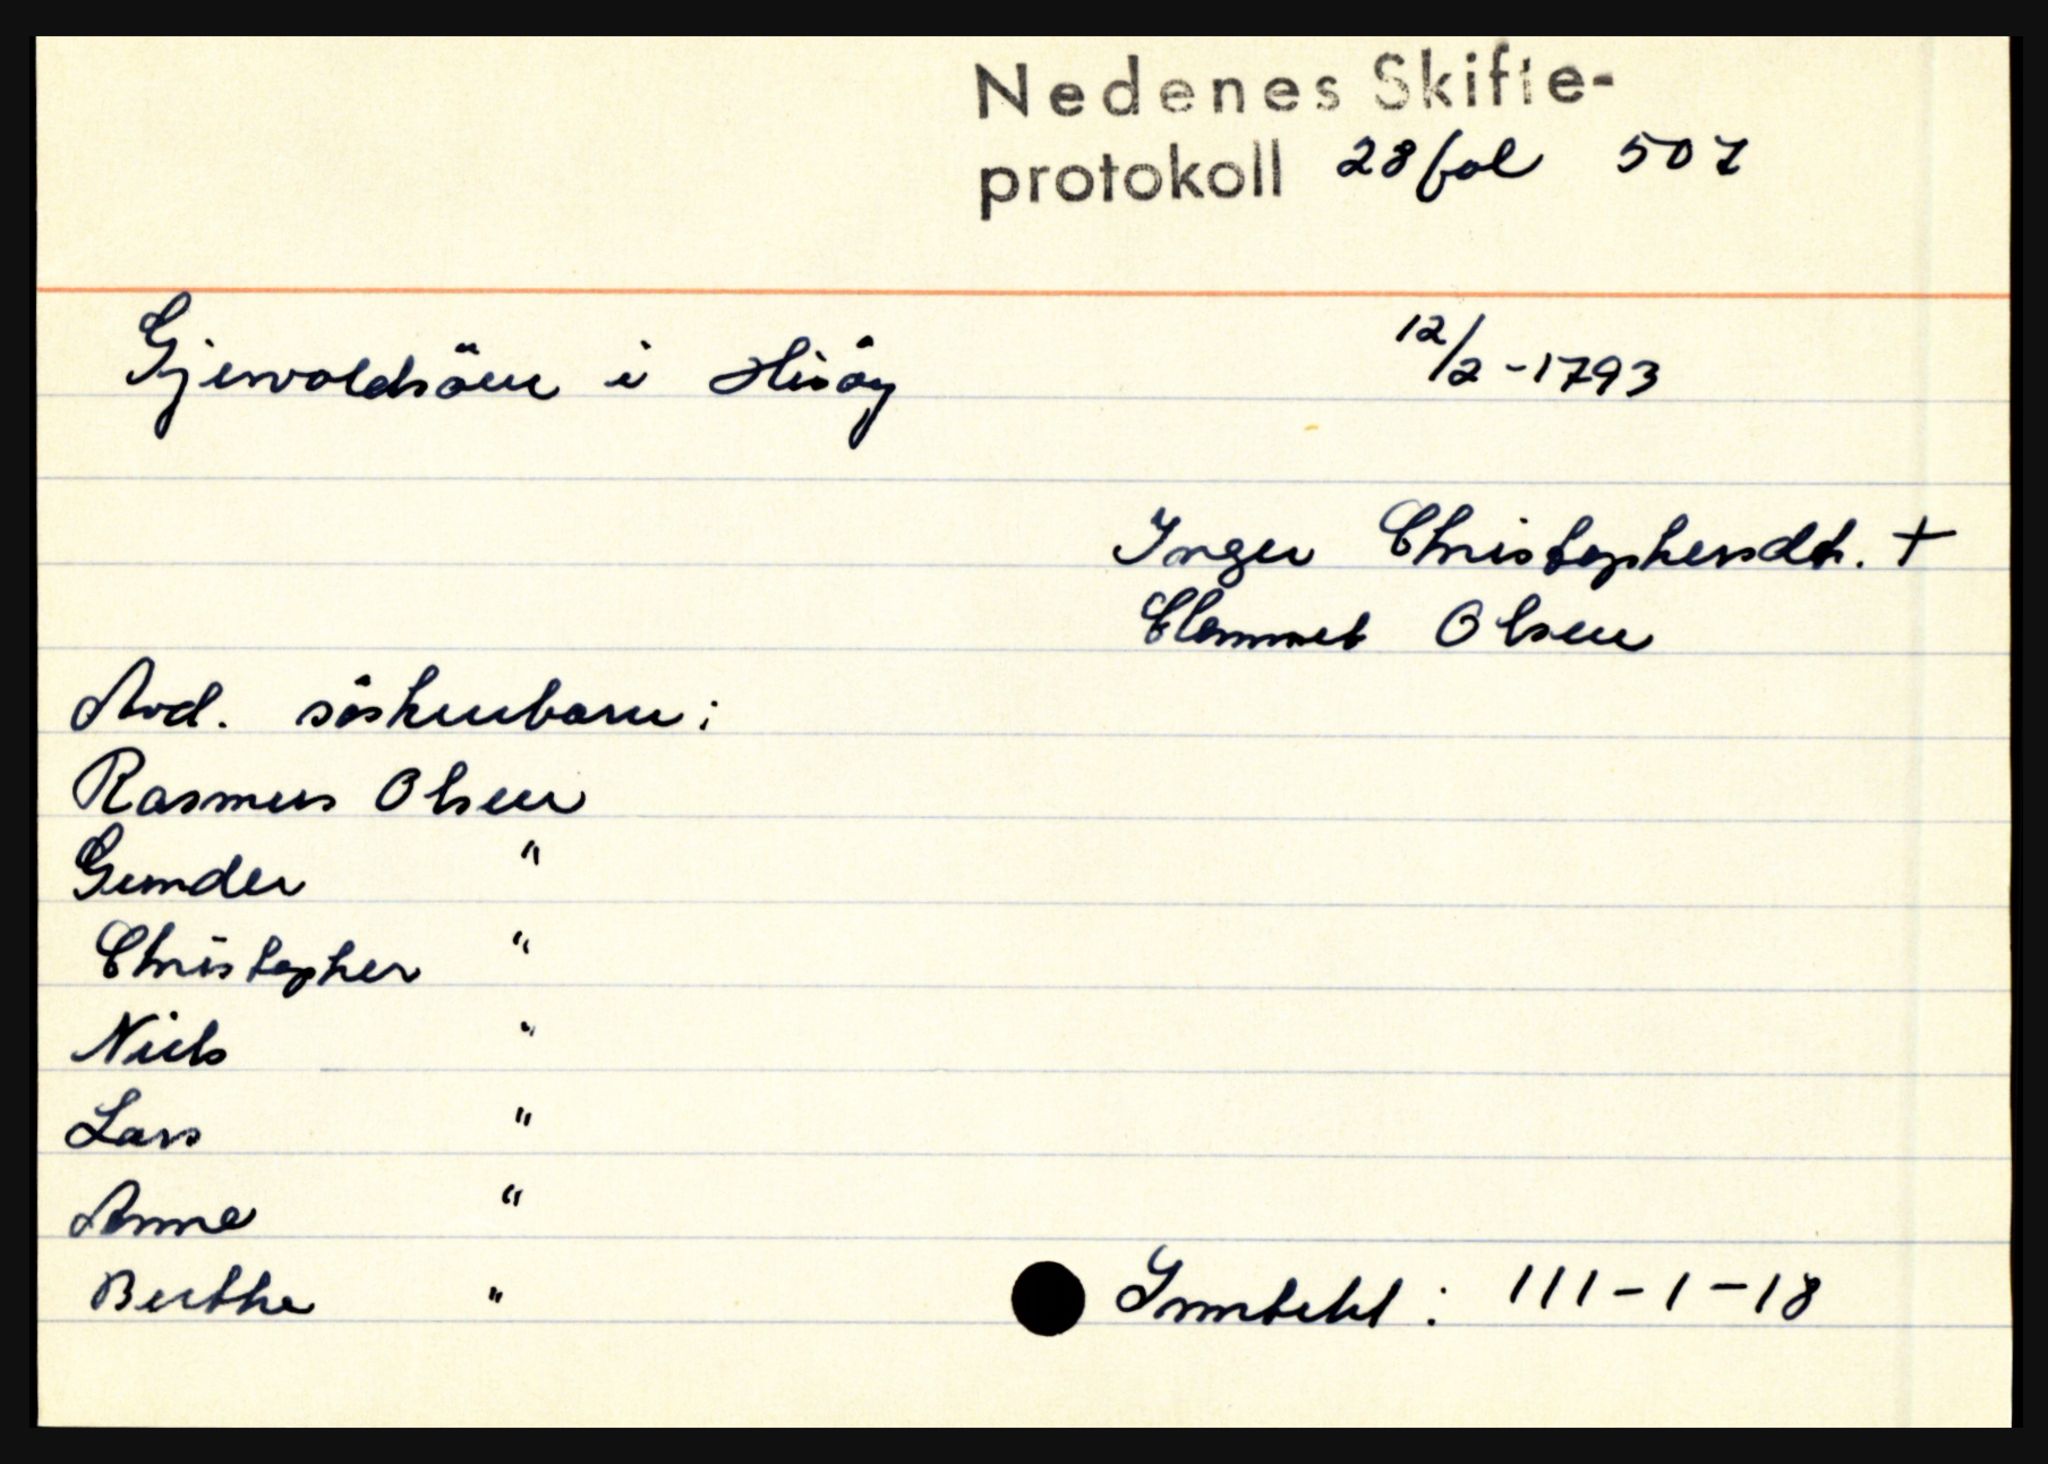 Nedenes Skifte-
protokoll 28 fol 507
Gjervoldsöen i Hisöy 12/2-1793
Inger Christophersdt. +
Clemmet Olsen
Arv. söskenbarn:
Rasmus Olsen
Gunder "
Christopher "
Niels "
Lars "
Anne "
Berthe "
Inntekt: 111-1-18